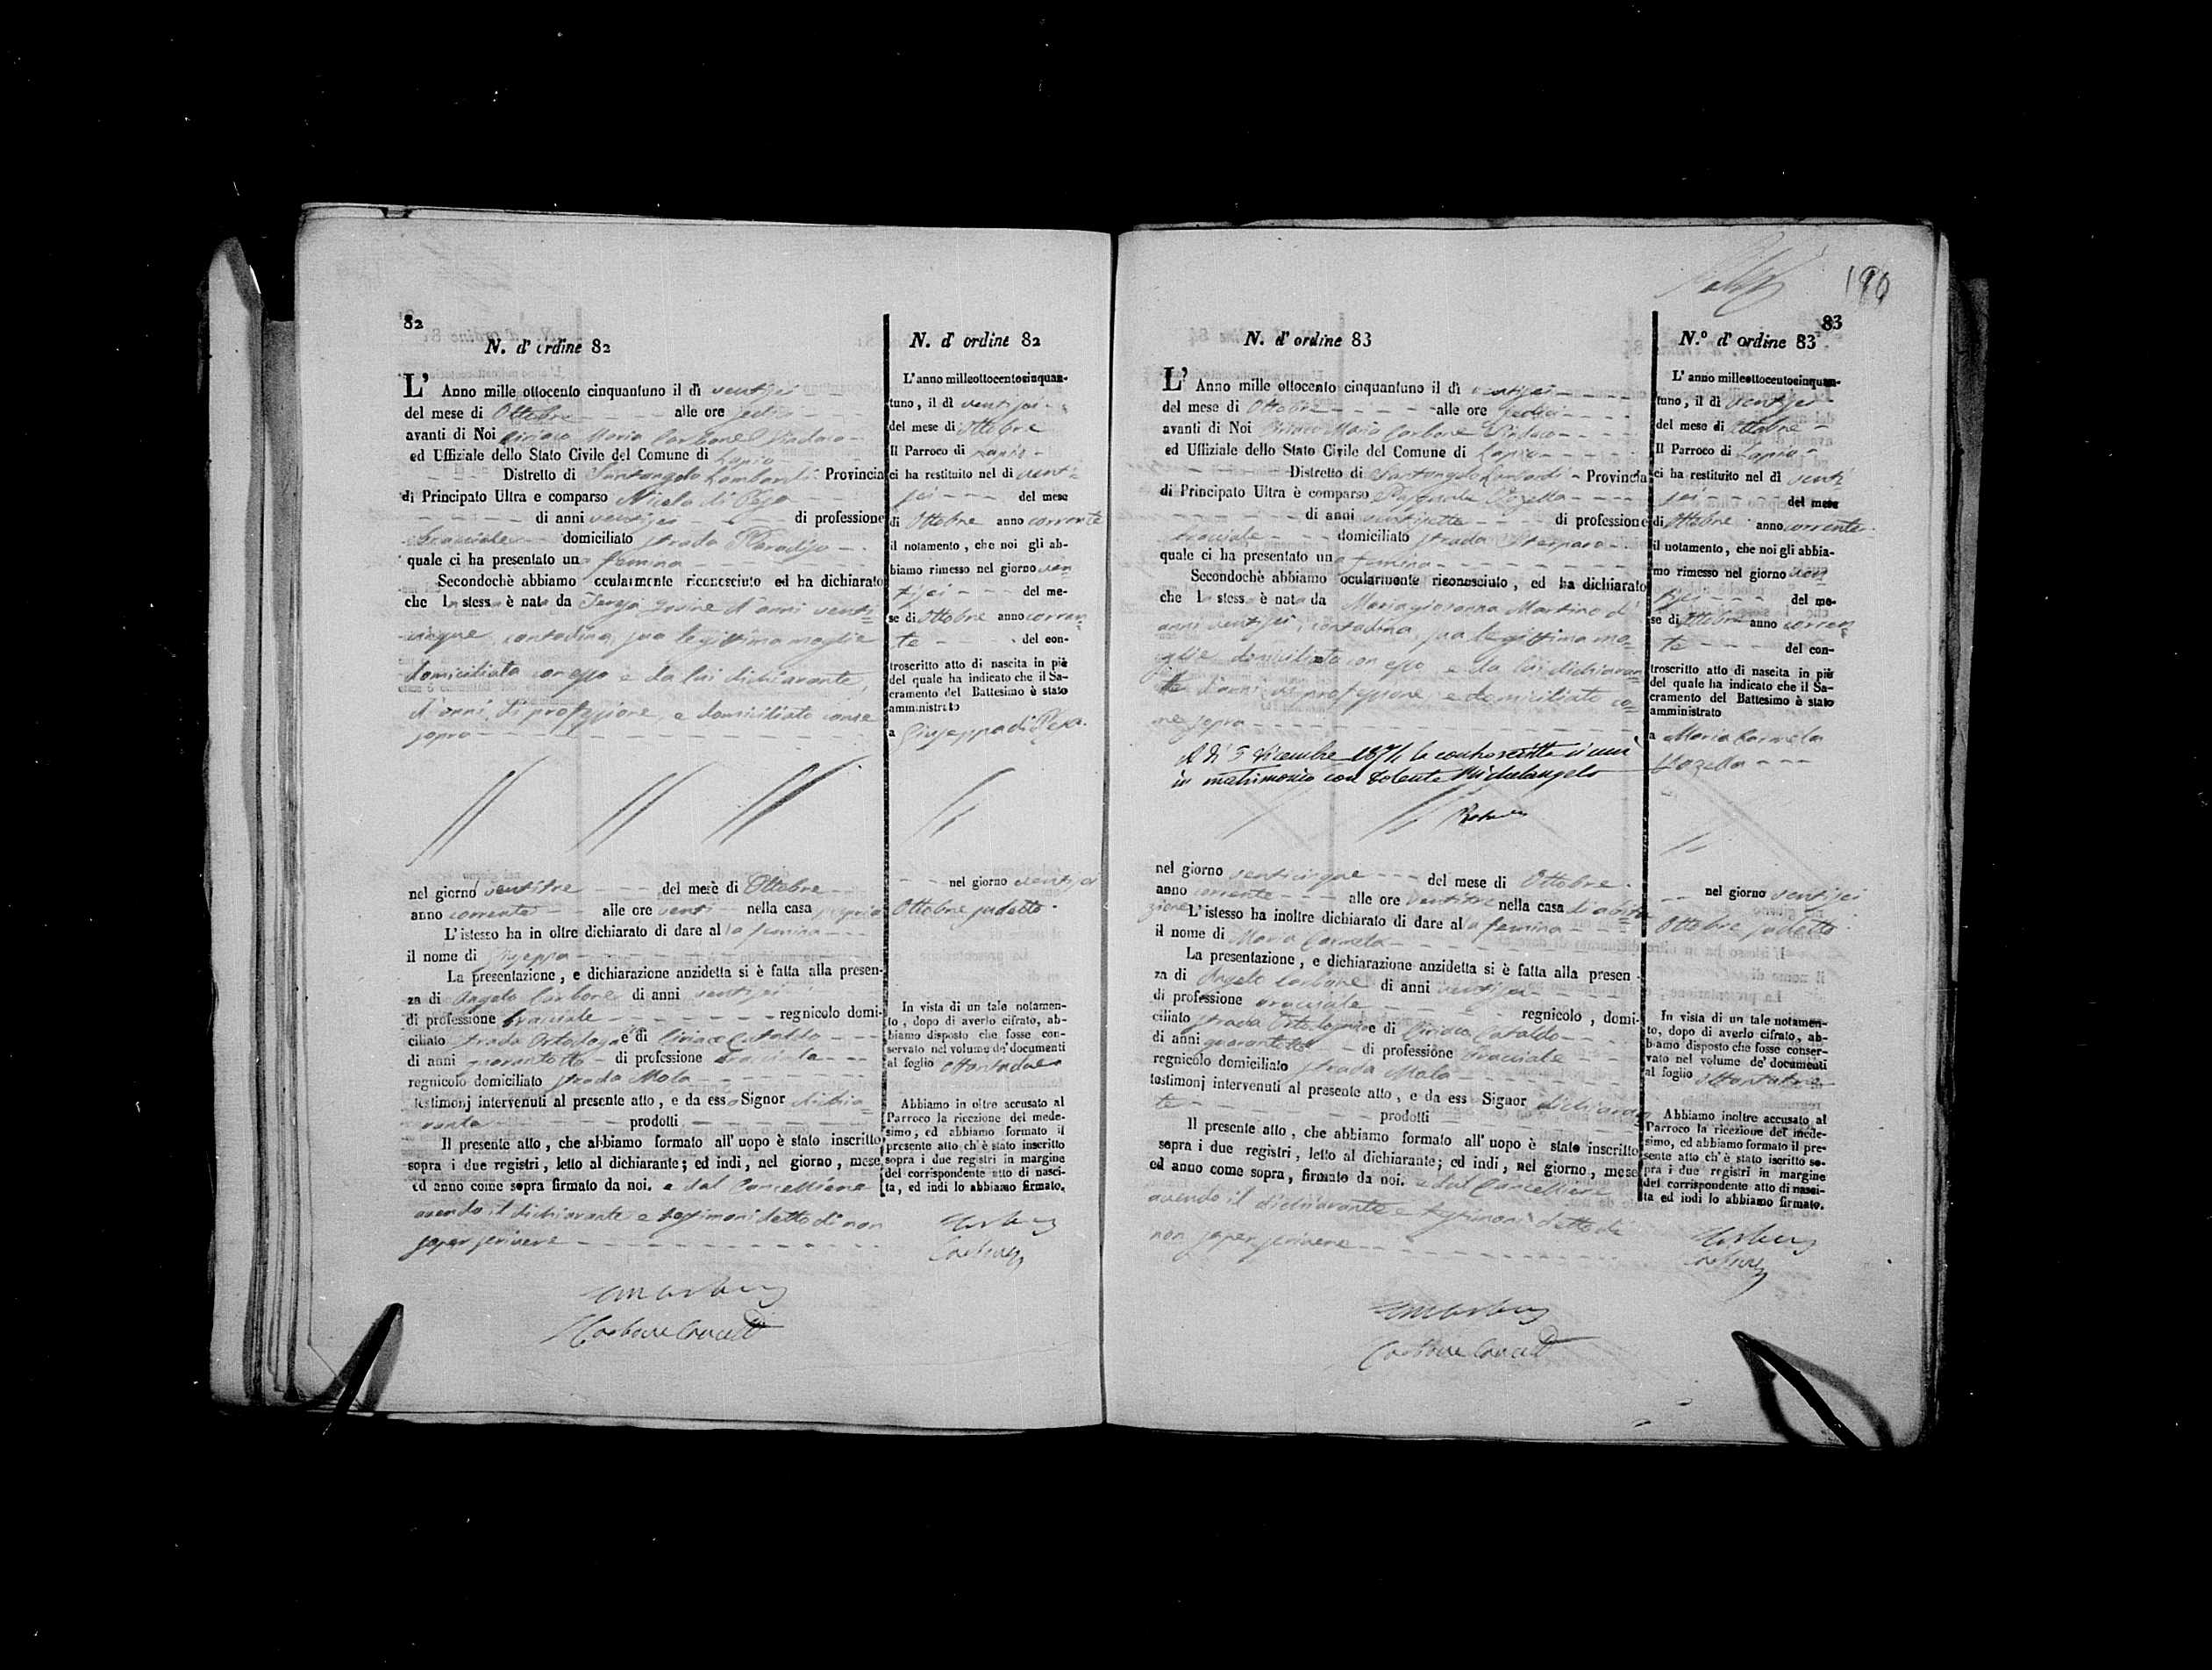 82
N. d' ordine 82
L' Anno mille ottocento cinquantuno il dì ventisei
del mese di Ottobre alle ore sedici
avanti di Noi Ciriaco Maria Carbone Sindaco
ed Uffiziale dello Stato Civile del Comune di Lapio
Distretto di Santangelo Lombardi Provincia
di Principato Ultra e comparso Nicola di
di anni ventisei di professione
bracciale domiciliato strada Paradiso
quale ci ha presentato una femina
Secondochè abbiamo ocularmente riconosciuto ed ha dichiarato
che la stessa è nata da d'anni venti
cinque, contadina, sua legittima moglie
domiciliata con esso e da lui dichiarante,
d'anni, di professione, e domiciliato come
sopra
nel giorno ventitre del mese di Ottobre
anno corrente alle ore venti nella casa propria
L'istesso ha in oltre dichiarato di dare alla femina
il nome di Giuseppa
La presentazione, e dichiarazione anzidetta si è fatta alla presen-
za di Angelo Carbone di anni ventisei
di professione bracciale regnicolo domi-
ciliato strada e di Ciriaco Cataldo
di anni quarantotto di professione bracciale
regnicolo domiciliato strada Mola
testimonj intervenuti al presente atto, e da esso Signor dichia-
rante prodotti
Il presente atto, che abbiamo formato all' uopo è stato inscritto
sopra i due registri, letto al dichiarante; ed indi, nel giorno, mese
ed anno come sopra firmato da noi. e dal Cancelliere
avendo il dichiarante e testimoni detto di non
saper scrivere
Carbone Cancell
N. d' ordine 82
L'anno milleottocentocinquan-
tuno, il dì ventisei
del mese di Ottobre
Il Parroco di Lapio
ci ha restituito nel dì venti-
sei del mese
di Ottobre anno corrente
il notamento, che noi gli ab-
biamo rimesso nel giorno ven
tisei del me-
se di Ottobre anno corren
te del con-
troscritto atto di nascita in piè
del quale ha indicato che il Sa-
cramento del Battesimo è stato
amministrato
a Giuseppa di
nel giorno ventisei
Ottobre sudetto
In vista di un tale notamen-
to, dopo di averlo cifrato, ab-
biamo disposto che fosse con-
servato nel volume de' documenti
al foglio ottantadue
Abbiamo in oltre accusato al
Parroco la ricezione del mede-
simo, ed abbiamo formato il
presente atto ch' è stato inscritto
sopra i due registri in margine
del corrispondente atto di nasci-
ta, ed indi lo abbiamo firmato.
Carbone
83
N. d' ordine 83
L' Anno mille ottocento cinquantuno il dì ventisei
del mese di Ottobre alle ore sedici
avanti di Noi Ciriaco Maria Carbone Sindaco
ed Uffiziale dello Stato Civile del Comune di Lapio
Distretto di Santangelo Lombardi Provincia
di Principato Ultra è comparso Pasquale
di anni ventisette di professione
bracciale domiciliato strada
quale ci ha presentato una femina
Secondochè abbiamo ocularmente riconosciuto, ed ha dichiarato
che la stessa è nata da Mariagiovanna Martino d'
anni ventisei, contadina, sua legittima mo-
glie domiciliata con esso e da lui dichiaran-
te d'anni, di professione, e domiciliato co-
me sopra
Il dì 5 Dicembre 1871 la controscritta si unì
in matrimonio con Michelangelo
nel giorno venticinque del mese di Ottobre
anno corrente alle ore ventitre nella casa di abita-
zione
L'istesso ha inoltre dichiarato di dare alla femina
il nome di Maria Carmela
La presentazione, e dichiarazione anzidetta si è fatta alla presen-
za di Angelo Carbone di anni ventisei
di professione bracciale regnicolo, domi-
ciliato strada e di Ciriaco Cataldo
di anni quarantotto di professione bracciale
regnicolo domiciliato strada Mola
testimonj intervenuti al presente atto, e da ess Signor dichiaran
te prodotti
Il presente atto, che abbiamo formato all' uopo è stato inscritto
sopra i due registri, letto al dichiarante; ed indi, nel giorno, mese
ed anno come sopra, firmato da noi. e dal Cancelliere
avendo il dichiarante e testimoni detto di
non saper scrivere
Carbone Cancell
N.º d' ordine 83
L' anno milleottocentocinquan-
tuno, il dì ventisei
del mese di Ottobre
Il Parroco di Lapio
ci ha restituito nel dì venti
sei del mese
di Ottobre anno corrente
il notamento, che noi gli abbia-
mo rimesso nel giorno ven
tisei del me-
se di Ottobre anno corren
te del con-
troscritto atto di nascita in piè
del quale ha indicato che il Sa-
cramento del Battesimo è stato
amministrato
a Maria Carmela
nel giorno ventisei
Ottobre sudetto
In vista di un tale notamen-
to, dopo di averlo cifrato, ab-
biamo disposto che fosse conser-
vato nel volume de' documenti
al foglio ottantatre
Abbiamo inoltre accusato al
Parroco la ricezione del mede-
simo, ed abbiamo formato il pre-
sente atto ch' è stato iscritto so-
pra i due registri in margine
del corrispondente atto di nasci-
ta ed indi lo abbiamo firmato.
Carbone